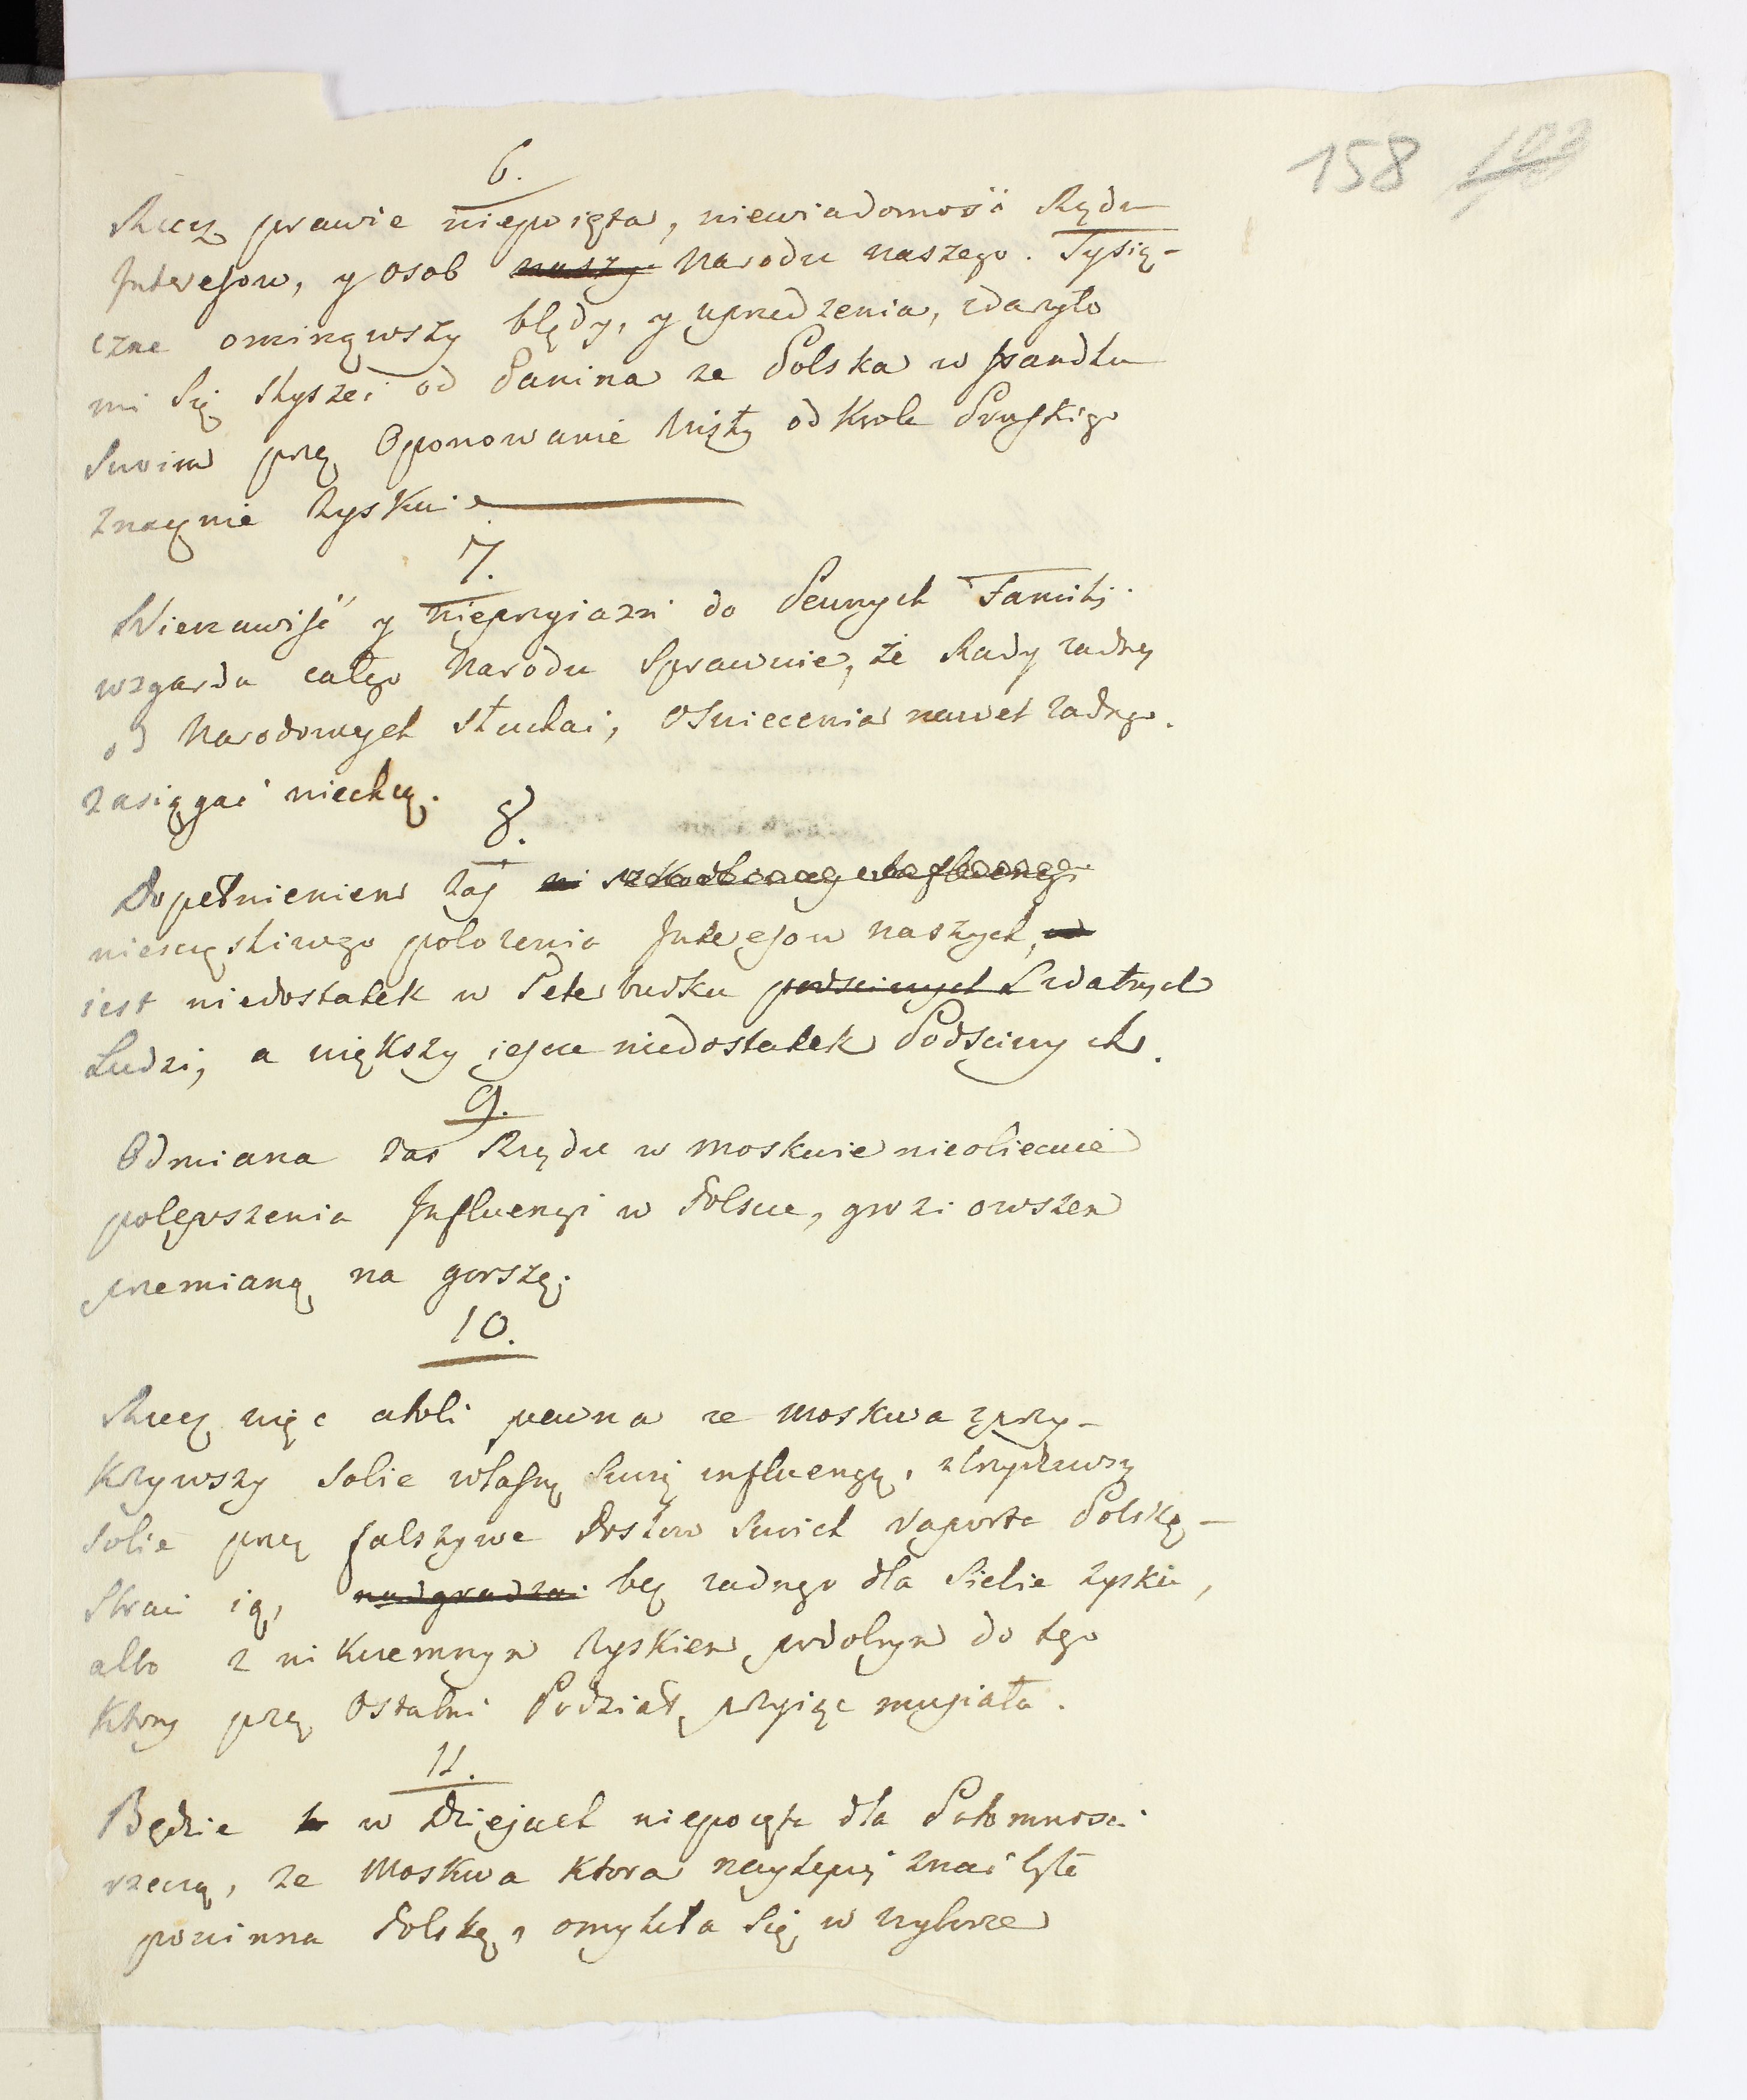 158
6.
Rzecz prawie niepoięta, niewiadomość Rządu
Interesow, y osob naszy Narodu naszego. Tysią-
czne ominąwszy błędy, y uprzedzenia, zdarzyło
mi się słyszeć od Panina ze Polska w handlu
swoim przez Oponowanie Wisły od Krola Pruskiego
znacznie zyskuie
7.
Nienawiść y nieprzyiazń do Pewnych Familij
wzgarda całego Narodu sprawuie, że Rady zadney
od Narodowych słuchać, oświecenia nawet zadnego
zasięgać niechcą.
8.
Dopełnieniem zaś
nieszczęśliwego położenia Interesow naszych,
iest niedostatek w Petersburku podsciwych zdatnych
Ludzi, a większy ieszcze niedostatek Podsciwych.
9.
Odmiana zas Rządu w Moskwie nieobiecuie
polepszenia Influencyi w Polszcze, grozi owszem
przemianą na gorszą.
10.
Rzecz więc atoli pewna ze Moskwa zprzy-
krzywszy sobie własną swoią influencyą, zbrzydziwszy
sobie przez fałszywe Posłow swoich raporta Polskę-
straci ią, nadgradzai bez zadnego dla siebie zysku,
albo z nikczemnym zyskiem podobnym do tego
ktory przez ostatni Podział przyiąc musiała.
11.
Będzie to w Dziejach niepoięta dla Potomnosci
rzeczą, ze Moskwa ktora naylepiey znać była
powinna Polskę, omyliła się w wyborze